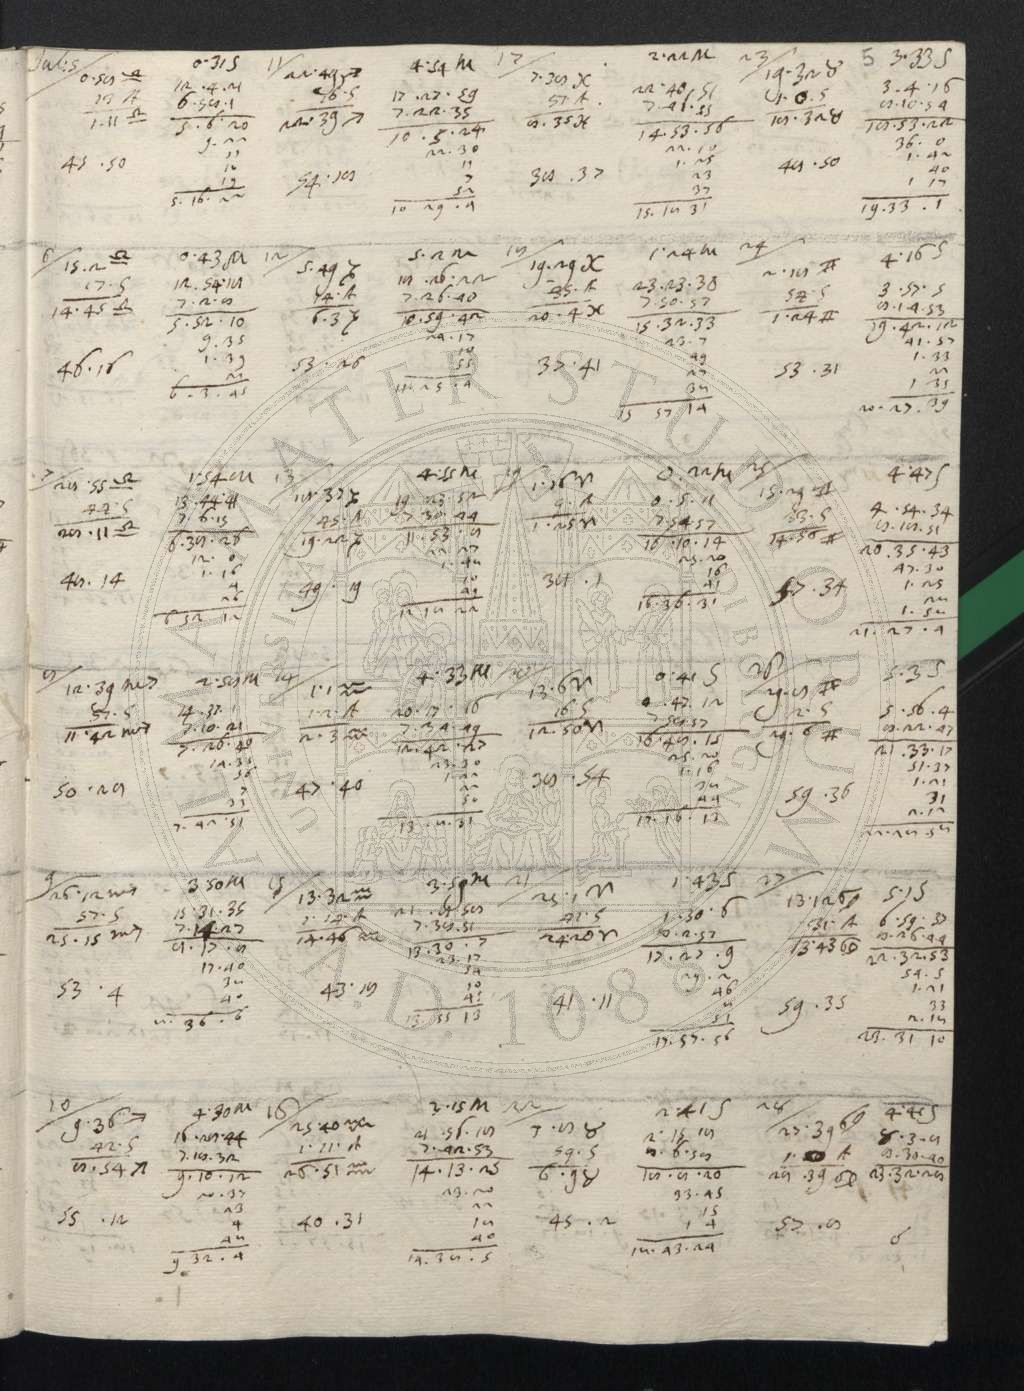 5
Jul. 5 0.31 S
0.58 ♎ 12.4.21
13 A 6.58.1
1.11 ♎ 5.6.20
9.22
11
10
45.50 19
5.16.22
6 0.43 M
15.2 ♎ 12.54.18
17.S 7.2.8
14.45 ♎ 5.52.10
9.35
1.39
46.16 21
6.3.45
7 1.54 M
28.55 ♎ 13.44.41
44.S 7.6.15
28.11 ♎ 6.38.26
12.0
1.16
48.14 4
26
6.52.12
8 2.58 M
12.39 ♏ 14.37.1
57.S 7.10.21
11.42 ♏ 7.26.40
14.35
56
50.28 7
33
7.42.51
9 3.50 M
26.12 ♏ 15.31.35
57.S 7.14.27
25.15 ♏ 8.17.8
17.40
38
53.4 40
8.36.6
10 4.30 M
9.36 ♐ 16.28.44
42.S 7.18.32
8.54 ♐ 9.10.12
20.37
23
55.12 4
48
9.32.4
11 4.54 M
22.49 ♐ 17.27.59
7.22.35
22.39 ♐ 10.5.24
22.30
11
54.18 7
52
10.29.4
12 5.2 M
5.49 ♑ 18.26.22
14.A 7.26.40
6.3 ♑ 10.59.42
24.17
10
53.26 55
11.25.4
13 4.55 M
18.37 ♑ 19.23.52
45.A 7.30.44
19.22 ♑ 11.53.8
22.27
1.48
49.19 10
49
12.18.22
14 4.33 M
1.1 ♒ 20.17.16
1.2.A 7.34.49
2.3 ♒ 12.42.27
23.30
1.22
47.40 22
50
13.8.31
15 3.59 M
13.32 ♒ 21.8.58
1.14.A 7.38.51
14.46 ♒ 13.30.7
23.17
54
43.18 10
45
13.55.13
16 3.15 M
25.40 ♒ 21.56.18
1.11.A 7.42.53
26.51 ♒ 14.13.25
23.20
22
40.31 18
40
14.38.5
17 2.22 M
7.38 ♓ 22.40.51
57.A 7.46.55
8.35 ♓ 14.53.56
22.10
1.25
38.37 23
37
15.18.31
18 1.24 M
19.29 ♓ 23.23.30
35.A 7.50.57
20.4 ♓ 15.32.33
23.7
49
37.41 27
15.57.14
19 0.22 M
1.16 ♈ 0.5.11
9.A 7.54.57
1.25 ♈ 16.10.14
25.20
16
38.1 41
16.36.31
20 0.41 S
13.6 ♈ 0.47.12
16.S 7.58.57
12.50 ♈ 16.48.15
25.20
1.16
38.54 38
44
17.16.13
21 1.43 S
25.1 ♈ 1.30.6
41.S 8.2.57
24.20 ♈ 17.27.9
29.2
46
41.11 8
51
17.57.56
22 2.41 S
7.8 ♉ 2.15.18
59.S 8.6.58
6.9 ♉ 18.8.20
33.45
15
45.2 1.4
18.43.24
23 3.33 S
19.32 ♉ 3.4.16
1.0.S 8.10.54
18.32 ♉ 18.53.22
36.0
1.42
48.50 40
1.17
19.33.1
24 4.16 S
2.18 ♊ 3.57.5
54.S 8.14.53
1.24 ♊ 19.42.12
41.57
1.33
53.31 22
1.35
20.27.39
25 4.47 S
15.29 ♊ 4.54.34
53.S 8.18.51
14.36 ♊ 20.35.43
47.30
1.25
57.34 28
1.58
21.27.4
26 5.3 S
29.8 ♊ 5.56.4
2.S 8.22.47
29.6 ♊ 21.33.17
51.37
1.21
59.36 31
2.12
22.28.58
27 5.1 S
13.12 ♋ 6.59.37
31.A 8.26.44
13.43 ♋ 22.32.53
54.5
1.21
59.35 33
2.18
23.31.10
28 4.41 S
27.39 ♋ 8.3.8
1.0 A 8.30.40
28.39 ♋ 23.32.28
57.8
ALMA MATER STUDIORUM
UNIVERSITAS BONONIENSIS
A.D. 1088